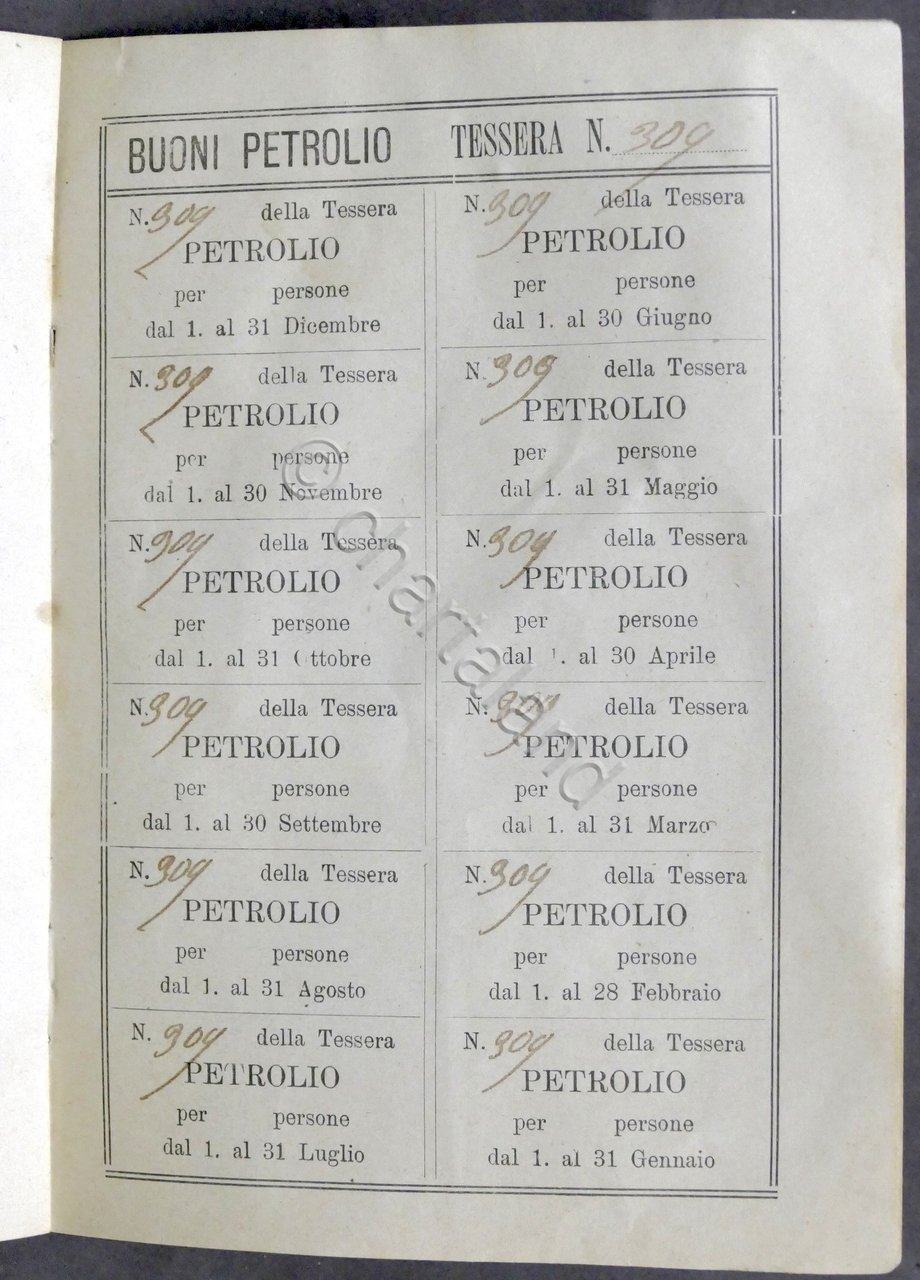 BUONI PETROLIO TESSERA N. 309
N. 309 della Tessera
PETROLIO
per persone
dal 1. al 31 Dicembre
N. 309 della Tessera
PETROLIO
per persone
dal 1. al 30 Novembre
N. 309 della Tessera
PETROLIO
per persone
dal 1. al 31 Ottobre
N. 309 della Tessera
PETROLIO
per persone
dal 1. al 30 Settembre
N. 309 della Tessera
PETROLIO
per persone
dal 1. al 31 Agosto
N. 309 della Tessera
PETROLIO
per persone
dal 1. al 31 Luglio
N. 309 della Tessera
PETROLIO
per persone
dal 1. al 30 Giugno
N. 309 della Tessera
PETROLIO
per persone
dal 1. al 31 Maggio
N. 309 della Tessera
PETROLIO
per persone
dal 1. al 30 Aprile
N. 309 della Tessera
PETROLIO
per persone
dal 1. al 31 Marzo
N. 309 della Tessera
PETROLIO
per persone
dal 1. al 28 Febbraio
N. 309 della Tessera
PETROLIO
per persone
dal 1. al 31 Gennaio
© chartaland